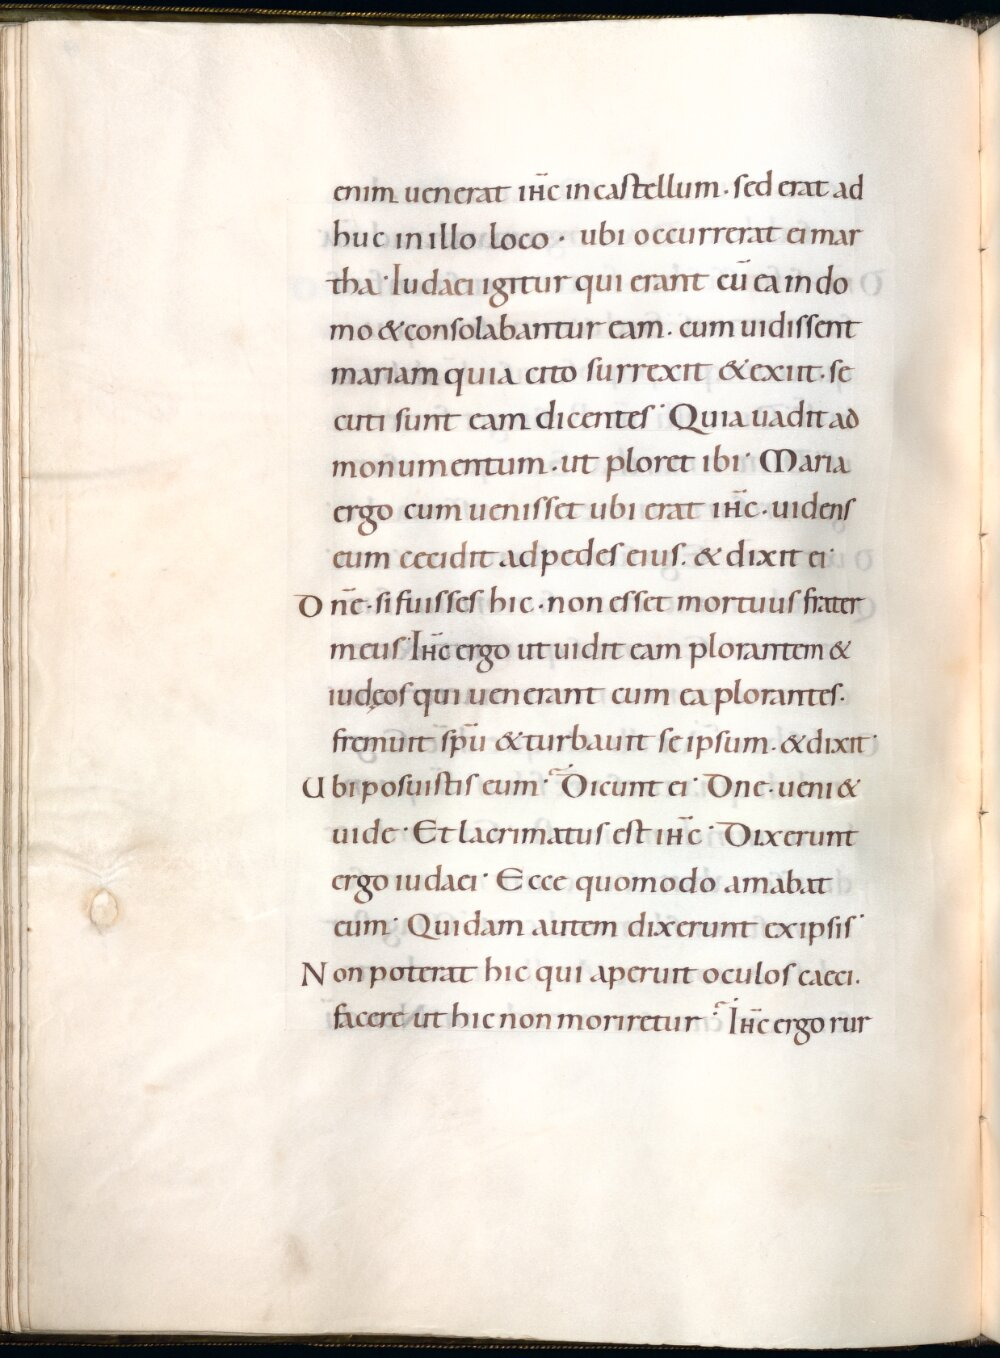 enim uenerat ih̅c in castellum · sed erat ad
huc in illo loco · ubi occurrerat ei mar
tha · Iudaei igitur qui erant cū ea in do
mo & consolabantur eam · cum uidissent
mariam quia cito surrexit & exiit · se
cuti sunt eam dicentes · Quia uadit ad
monumentum · ut ploret ibi · Maria
ergo cum uenisset ubi erat ih̅c · uidens
eum cecidit ad pedes eius · & dixit ei ·
Dn̅e · si fuisses hic · non esset mortuus frater
meus · Ih̅c ergo ut uidit eam plorantem &
iudęos qui uenerant cum ea plorantes ·
fremuit sp̅u & turbauit se ipsum · & dixit ·
Ubi posuistis eum · Dicunt ei · Dne · ueni &
uide · Et lacrimatus est ih̅c · Dixerunt
ergo iudaei · Ecce quomodo amabat
eum · Quidam autem dixerunt ex ipsis ·
Non poterat hic qui aperuit oculos caeci ·
facere ut hic non moriretur · Ih̅c ergo rur